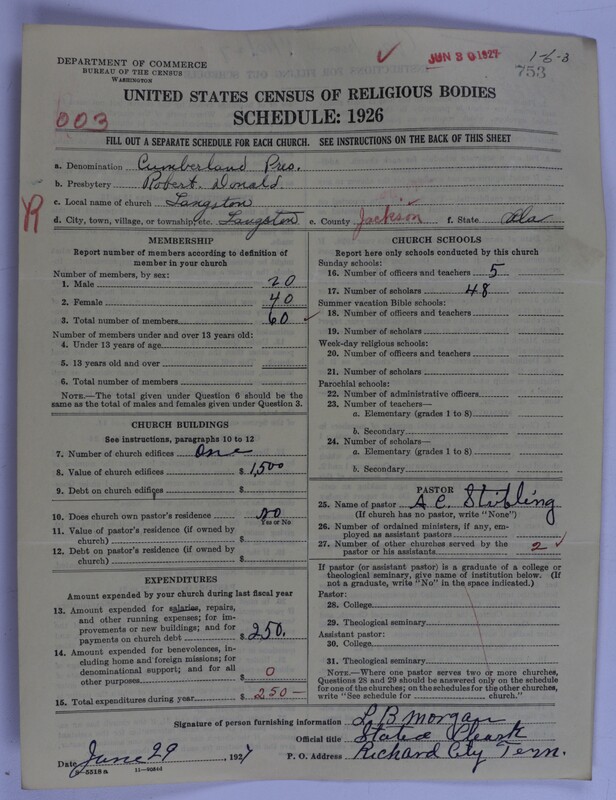 DEPARTMENT OF COMMERCE
BUREAU OF THE CENSUS
WASHINGTON
JUN 30 1927
1-6-3
753
UNITED STATES CENSUS OF RELIGIOUS BODIES
SCHEDULE: 1926
003
FILL OUT A SEPARATE SCHEDULE FOR EACH CHURCH. SEE INSTRUCTIONS ON THE BACK OF THIS SHEET
a. Denomination Cumberland Pres.
b. Presbytery Robert Donald.
c. Local name of church Langston
R
d. City, town, village, or township, etc. Langston e. County Jackson f. State Ala
MEMBERSHIP
Report number of members according to definition of
member in your church
Number of members, by sex:
1. Male 20
2. Female 40
3. Total number of members 60
Number of members under and over 13 years old:
4. Under 13 years of age
5. 13 years old and over
6. Total number of members
NOTE.—The total given under Question 6 should be
the same as the total of males and females given under Question 3.
CHURCH BUILDINGS
See instructions, paragraphs 10 to 12
7. Number of church edifices One
8. Value of church edifices $ 1,500
9. Debt on church edifices $
10. Does church own pastor's residence No
Yes or No
11. Value of pastor's residence (if owned by
church) $
12. Debt on pastor's residence (if owned by
church) $
EXPENDITURES
Amount expended by your church during last fiscal year
13. Amount expended for salaries, repairs,
and other running expenses; for im-
provements or new buildings; and for
payments on church debt $ 250.
14. Amount expended for benevolences, in-
cluding home and foreign missions; for
denominational support; and for all
other purposes $ 0
15. Total expenditures during year $ 250—
CHURCH SCHOOLS
Report here only schools conducted by this church
Sunday schools:
16. Number of officers and teachers 5
17. Number of scholars 48
Summer vacation Bible schools:
18. Number of officers and teachers
19. Number of scholars
Week-day religious schools:
20. Number of officers and teachers
21. Number of scholars
Parochial schools:
22. Number of administrative officers
23. Number of teachers—
a. Elementary (grades 1 to 8)
b. Secondary
24. Number of scholars—
a. Elementary (grades 1 to 8)
b. Secondary
PASTOR
25. Name of pastor A C. Stribling
(If church has no pastor, write "None")
26. Number of ordained ministers, if any, em-
ployed as assistant pastors
27. Number of other churches served by the
pastor or his assistants 2
If pastor (or assistant pastor) is a graduate of a college or
theological seminary, give name of institution below. (If
not a graduate, write "No" in the space indicated.)
Pastor:
28. College
29. Theological seminary
Assistant pastor:
30. College
31. Theological seminary
NOTE.—Where one pastor serves two or more churches,
Questions 28 and 29 should be answered only on the schedule
for one of the churches; on the schedules for the other churches,
write "See schedule for church."
Signature of person furnishing information L. B Morgan
Official title Stated Cleark
Date June 29, 1927 P. O. Address Richard City Tenn.
11—9088d